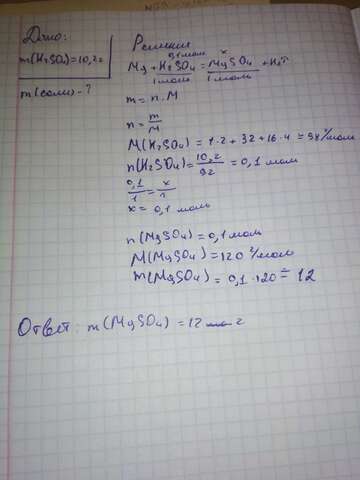 Дано:
m(H₂SO₄)=10,2г
m(соли)-?
Решение
0,1 моль x
Mg + H₂SO₄ = MgSO₄ + H₂↑
1 моль 1 моль
m = n · M
n = m/M
M(H₂SO₄) = 1·2 + 32 + 16·4 = 98 г/моль
n(H₂SO₄) = 10,2/92 = 0,1 моль
0,1/1 = x/1
x = 0,1 моль
n(MgSO₄) = 0,1 моль
M(MgSO₄) = 120 г/моль
m(MgSO₄) = 0,1·120 = 12
Ответ: m(MgSO₄) = 12 г